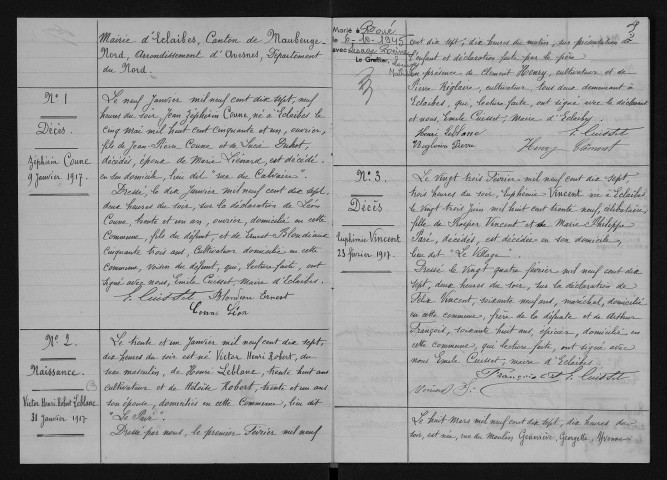 Mairie d'Eclaibes, Canton de Maubeuge-
Nord, Arrondissement d'Avesnes, Département
du Nord.
N° 1
Décès
Zéphirin Coune
9 Janvier 1917.
Le neuf Janvier mil neuf cent dix sept, neuf
heures du soir, Jean Zéphirin Coune, né à Eclaibes le
cinq Mai mil huit cent cinquante et un, ouvrier,
fils de Jean Pierre Coune et de Lucie
décédés, époux de Marie Liénard, est décédé
en son domicile, lieu dit "rue du Calvaire".
Dressé, le dix Janvier mil neuf cent dix sept
deux heures du soir, sur la déclaration de Léon
Coune, trente et un ans, ouvrier, domicilié en cette
Commune, fils du défunt, et de Ernest Blondiaux
Cinquante trois ans, Cultivateur domicilié en cette
Commune, voisin du défunt, qui, lecture faite, ont
signé avec nous, Emile Cuisset, Maire d'Eclaibes.
E. Cuisset Blondiau Ernest
Coune Léon
N° 2.
Naissance.
Victor Henri Robert Leblanc
31 Janvier 1917
Le trente et un Janvier mil neuf cent dix sept,
dix heures du soir est né Victor Henri Robert, du
sexe masculin, de Henri Leblanc, trente huit ans
cultivateur et de Héloïse Robert, trente et un ans
son épouse, domiciliés en cette Commune, lieu dit
Dressé par nous, le premier Février mil neuf
Marié à
le 6-10-1945
avec
Le Greffier,
cent dix sept, dix heures du matin, sur présentation de
l'enfant et déclaration faite par le père
en présence de Clément Henry, cultivateur et de
Pierre Réglaire, cultivateur, tous deux demeurant à
Eclaibes, qui, lecture faite, ont signé avec le déclarant
et nous, Emile Cuisset, Maire d'Eclaibes
Henri Leblanc E. Cuisset
Pierre Henry Clément
N° 3.
Décès
Euphémie Vincent
23 février 1917.
Le vingt trois Février mil neuf cent dix sept,
trois heures du soir, Euphémie Vincent née à Eclaibes
le vingt trois Juin mil huit cent trente neuf, célibataire,
fille de Prosper Vincent et de Marie Philippe
décédés, est décédée en son domicile,
lieu dit "Le Village".
Dressé le Vingt quatre février mil neuf cent dix
sept, deux heures du soir, sur la déclaration de
Félix Vincent, soixante neuf ans, maréchal, domicilié
en cette commune, frère de la défunte et de Arthur
François, soixante huit ans, épicier, domicilié en
cette commune, qui lecture faite, ont signé avec
nous Emile Cuisset, maire d'Eclaibes
François A E. Cuisset
Vincent F.
Le huit Mars mil neuf cent dix sept, dix heures du
soir, est née, rue du Moulin Geneviève, Georgette, Yvonne